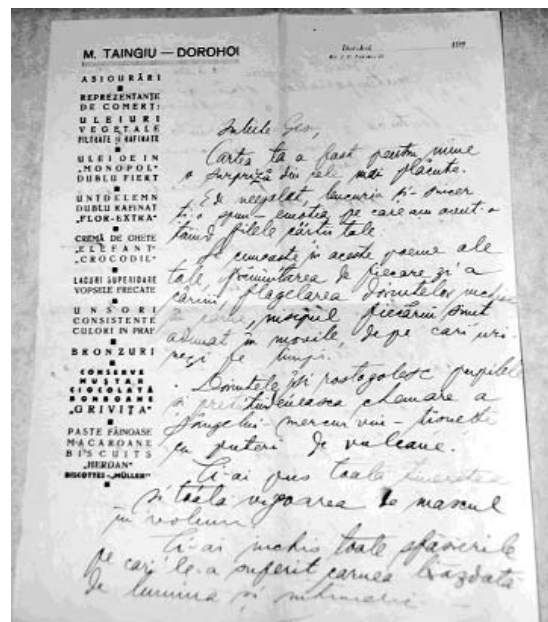 M. TAINGIU — DOROHOI
Dorohoi,
192
ASIGURĂRI
REPREZENTANȚE
DE COMERȚ:
ULEIURI
VEGETALE
FILTRATE ȘI RAFINATE
ULEI DE IN
„MONOPOL"
DUBLU FIERT
UNTDELEMN
DUBLU RAFINAT
„FLOR-EXTRA"
CREMĂ DE GHETE
„ELEFANT"
„CROCODIL"
LACURI SUPERIOARE
VOPSELE FRECATE
UNSORI
CONSISTENTE
CULORI IN PRAF
BRONZURI
CONSERVE
MUȘTAR
CIOCOLATĂ
BOMBOANE
„GRIVIȚA"
PASTE FĂINOASE
MACAROANE
BISCUITS
„HERDAN"
BISCOTTES-„MÜLLER"
Iubite Geo,
Cartea ta a fost pentru mine
o surpriză din cele mai plăcute.
E de neegalat, bucuria și - sincer
ți-o spun - emoția pe care am avut-o
tăind filele cărții tale
Se cunoaște în aceste poeme ale
tale, frământarea de fiecare zi a
cărnii, flagelarea dorințelor
nisipul fiecărui
adunat în movile, de pe cari
Dorințele își rostogolesc pupilele
și chemare a
sângelui mercur viu -
cu puteri de vulcane.
Ți-ai pus toată tinerețea
și toată vigoarea de mascul
în volum
Ți-ai închis toate sfâșierile
pe cari le-a suferit carnea brăzdată
de lumină și